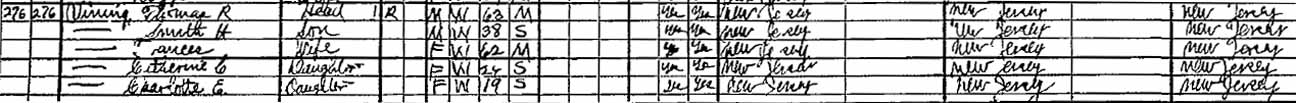 276 276 Vining, Thomas R Head 1 R M W 63 M Yes Yes New Jersey New Jersey New Jersey
— Smith H Son M W 38 S Yes Yes New Jersey New Jersey New Jersey
— Frances Wife F W 62 M Yes Yes New Jersey New Jersey New Jersey
— Catherine C Daughter F W 24 S Yes Yes New Jersey New Jersey New Jersey
— Charlotte E. Daughter F W 19 S Yes Yes New Jersey New Jersey New Jersey